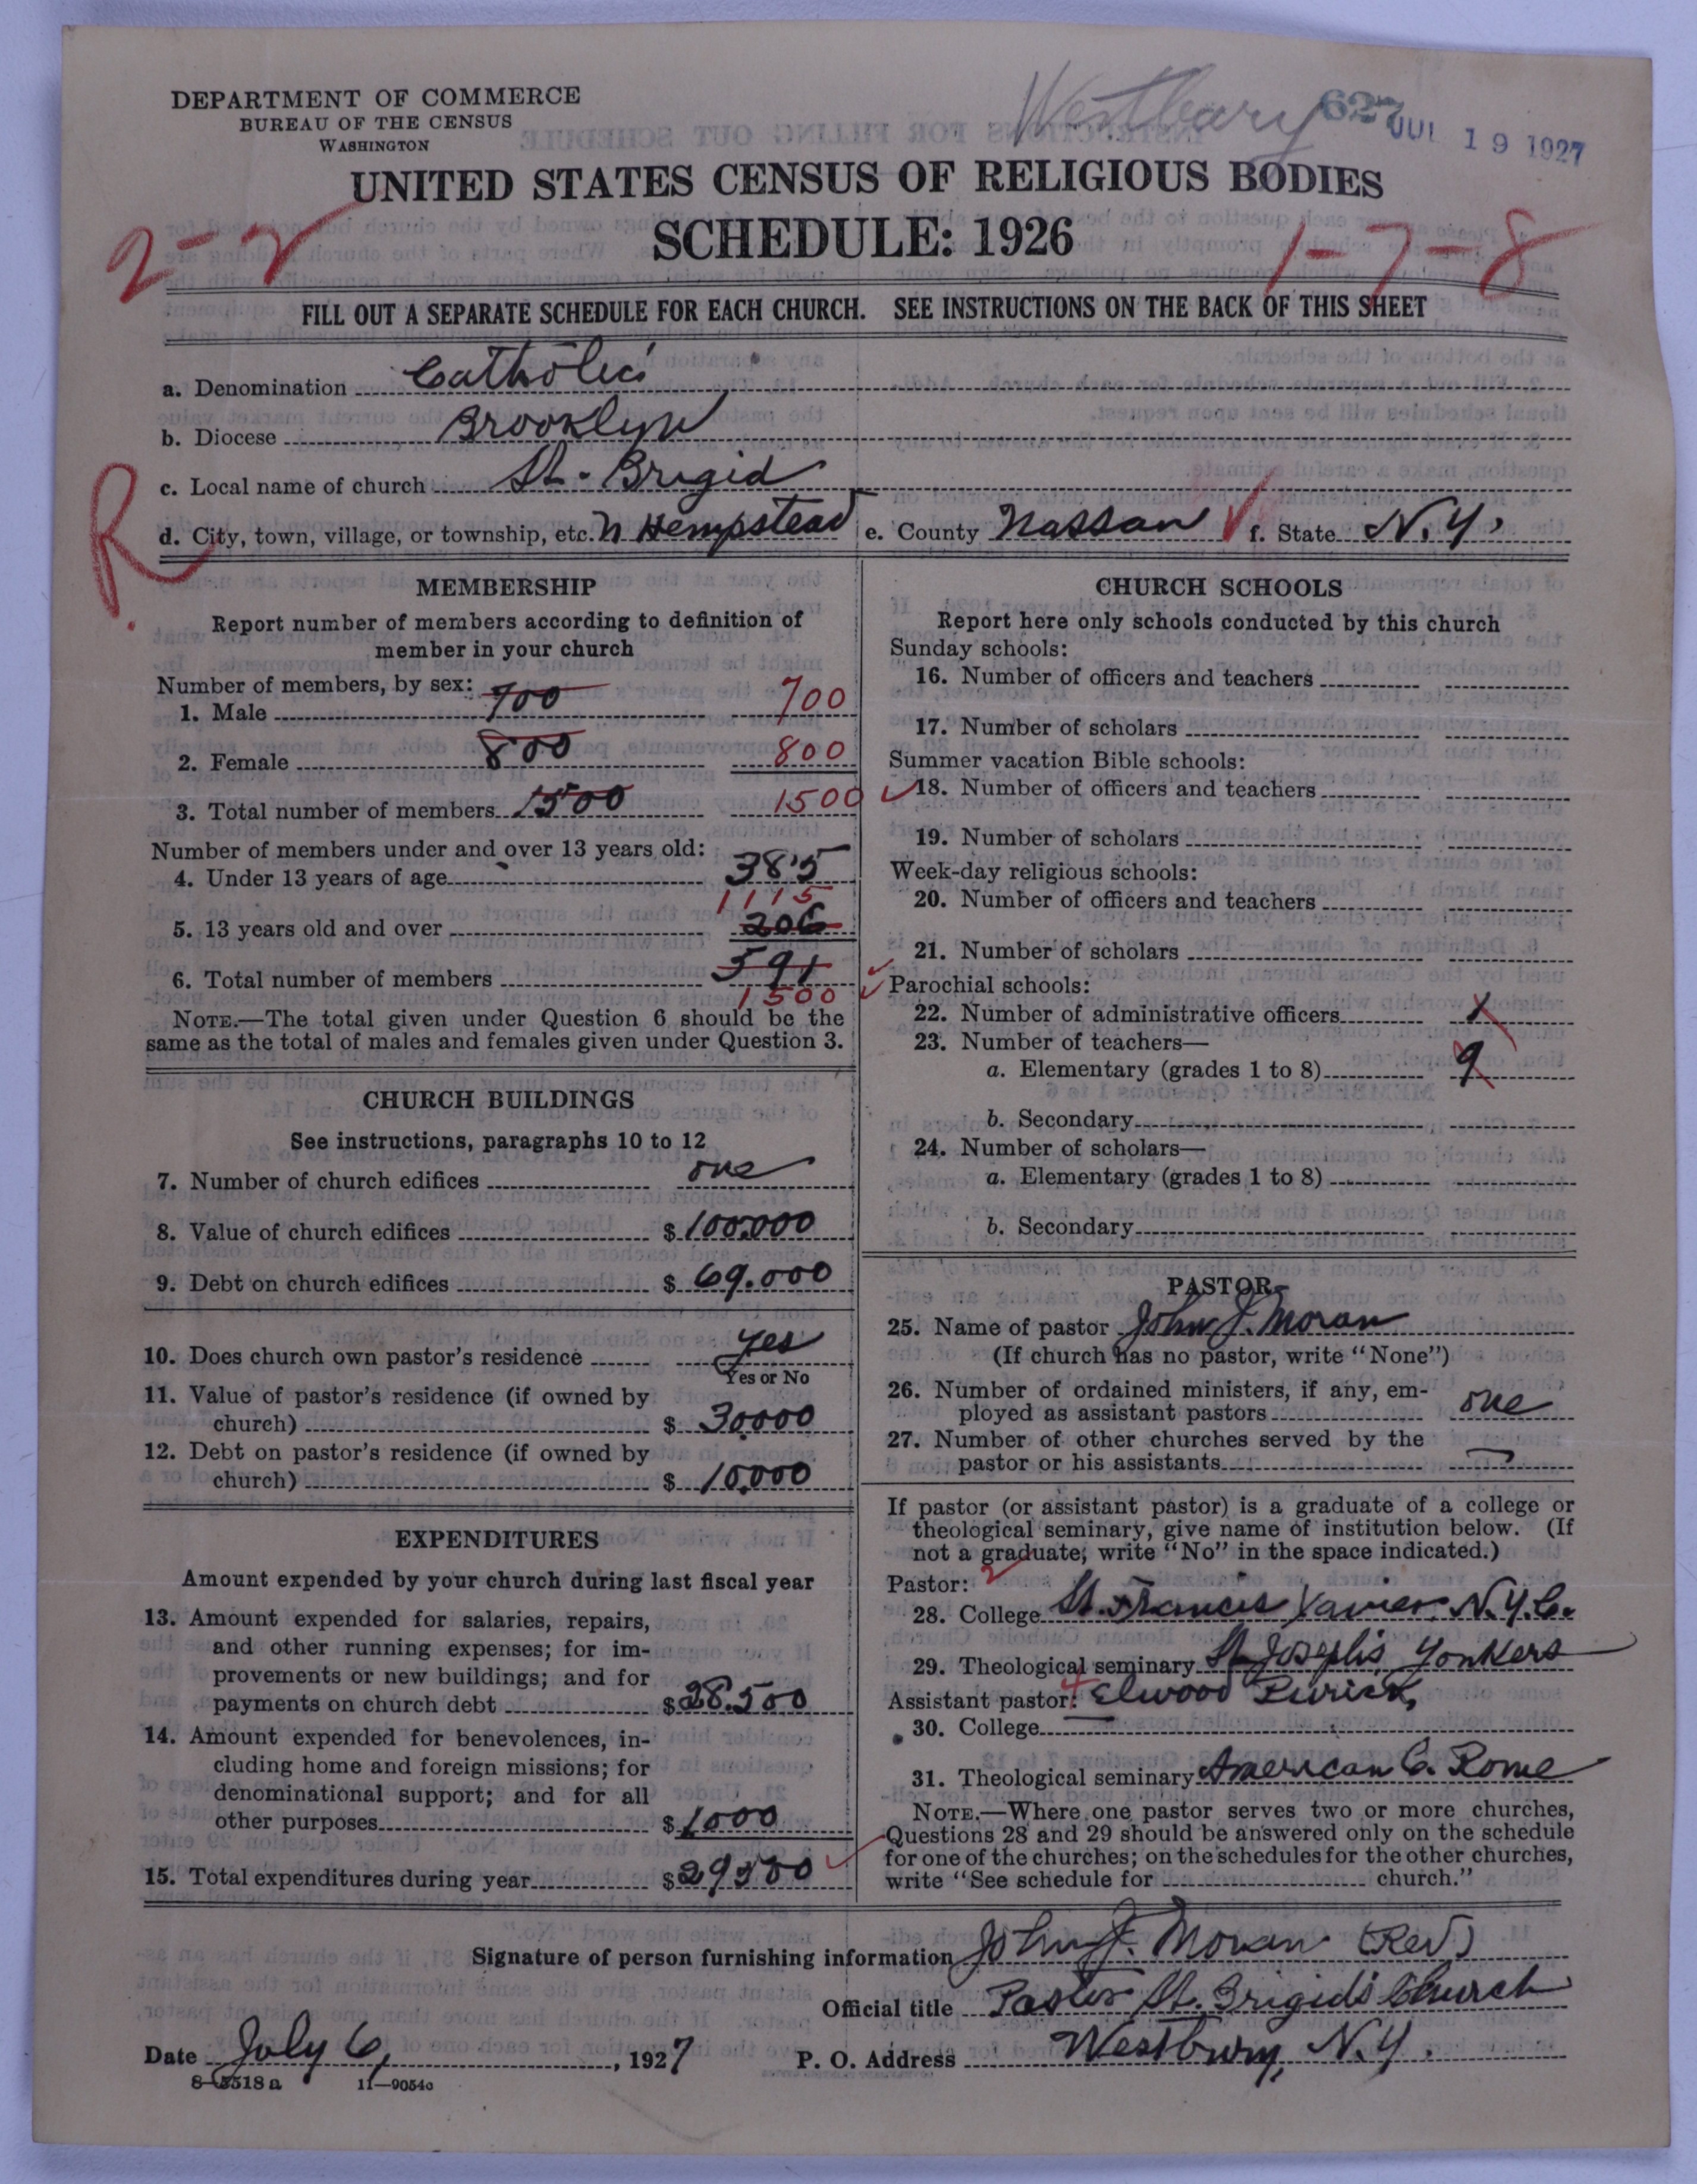 DEPARTMENT OF COMMERCE
BUREAU OF THE CENSUS
WASHINGTON
Westbury 627 JUL 19 1927
UNITED STATES CENSUS OF RELIGIOUS BODIES
SCHEDULE: 1926
2-2
1-7-8
FILL OUT A SEPARATE SCHEDULE FOR EACH CHURCH. SEE INSTRUCTIONS ON THE BACK OF THIS SHEET
a. Denomination Catholic
b. Diocese Brooklyn
c. Local name of church St. Brigid
R
d. City, town, village, or township, etc. N Hempstead e. County Nassau f. State N.Y.
MEMBERSHIP
Report number of members according to definition of
member in your church
Number of members, by sex:
1. Male 700 700
2. Female 800 800
3. Total number of members 1500 1500
Number of members under and over 13 years old:
4. Under 13 years of age 385
1115
5. 13 years old and over 206
6. Total number of members 591
1500
NOTE.—The total given under Question 6 should be the
same as the total of males and females given under Question 3.
CHURCH BUILDINGS
See instructions, paragraphs 10 to 12
7. Number of church edifices one
8. Value of church edifices $ 100.000
9. Debt on church edifices $ 69.000
10. Does church own pastor's residence yes
Yes or No
11. Value of pastor's residence (if owned by
church) $ 30000
12. Debt on pastor's residence (if owned by
church) $ 10.000
EXPENDITURES
Amount expended by your church during last fiscal year
13. Amount expended for salaries, repairs,
and other running expenses; for im-
provements or new buildings; and for
payments on church debt $ 28.500
14. Amount expended for benevolences, in-
cluding home and foreign missions; for
denominational support; and for all
other purposes $ 1000
15. Total expenditures during year $ 29500
CHURCH SCHOOLS
Report here only schools conducted by this church
Sunday schools:
16. Number of officers and teachers
17. Number of scholars
Summer vacation Bible schools:
18. Number of officers and teachers
19. Number of scholars
Week-day religious schools:
20. Number of officers and teachers
21. Number of scholars
Parochial schools:
22. Number of administrative officers 1
23. Number of teachers—
a. Elementary (grades 1 to 8) 9
b. Secondary
24. Number of scholars—
a. Elementary (grades 1 to 8)
b. Secondary
PASTOR
25. Name of pastor John J. Moran
(If church has no pastor, write "None")
26. Number of ordained ministers, if any, em-
ployed as assistant pastors one
27. Number of other churches served by the
pastor or his assistants
If pastor (or assistant pastor) is a graduate of a college or
theological seminary, give name of institution below. (If
not a graduate, write "No" in the space indicated.)
Pastor:
28. College St. Francis Xavier N.Y.C.
29. Theological seminary St Josephs Yonkers
Assistant pastor: Elwood
30. College
31. Theological seminary American C. Rome
NOTE.—Where one pastor serves two or more churches,
Questions 28 and 29 should be answered only on the schedule
for one of the churches; on the schedules for the other churches,
write "See schedule for church."
Signature of person furnishing information John J. Moran (Rev)
Official title Pastor St. Brigid's Church
Date July 6, 1927 P. O. Address Westbury, N.Y.
8—5518a 11—9054c